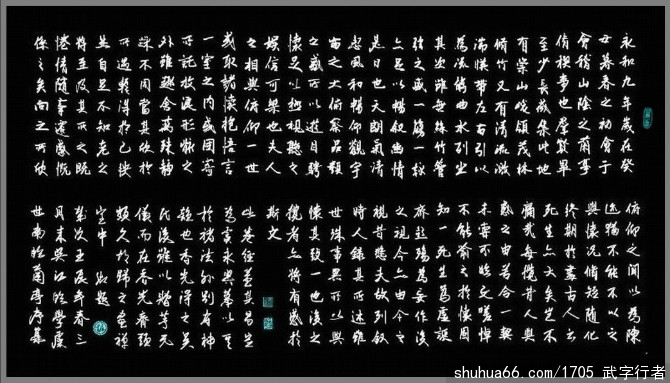 永和九年歲在癸
丑暮春之初會于
會稽山陰之蘭亭
脩禊事也羣賢畢
至少長咸集此地
有崇山峻領茂林
脩竹又有清流激
湍暎帶左右引以
為流觴曲水列坐
其次雖無絲竹管
弦之盛一觴一詠
亦足以暢叙幽情
是日也天朗氣清
惠風和暢仰觀宇
宙之大俯察品類
之盛所以遊目騁
懷足以極視聽之
娛信可樂也夫人
之相與俯仰一世
或取諸懷抱悟言
一室之內或因寄
所託放浪形骸之
外雖趣舍萬殊靜
躁不同當其欣於
所遇暫得於己怏
然自足不知老之
將至及其所之既
惓情隨事遷感慨
係之矣向之所欣
俯仰之間以為陳
迹猶不能不以之
興懷況脩短隨化
終期於盡古人云
死生亦大矣豈不
痛哉每攬昔人興
感之由若合一契
未嘗不臨文嗟悼
不能喻之於懷固
知一死生為虛誕
齊彭殤為妄作後
之視今亦由今之
視昔悲夫故列叙
時人錄其所述雖
世殊事異所以興
懷其致一也後之
攬者亦將有感於
斯文
於褚法外別有神
壬辰年春三
世南臨蘭亭序
shuhua66.com/1705 武字行者